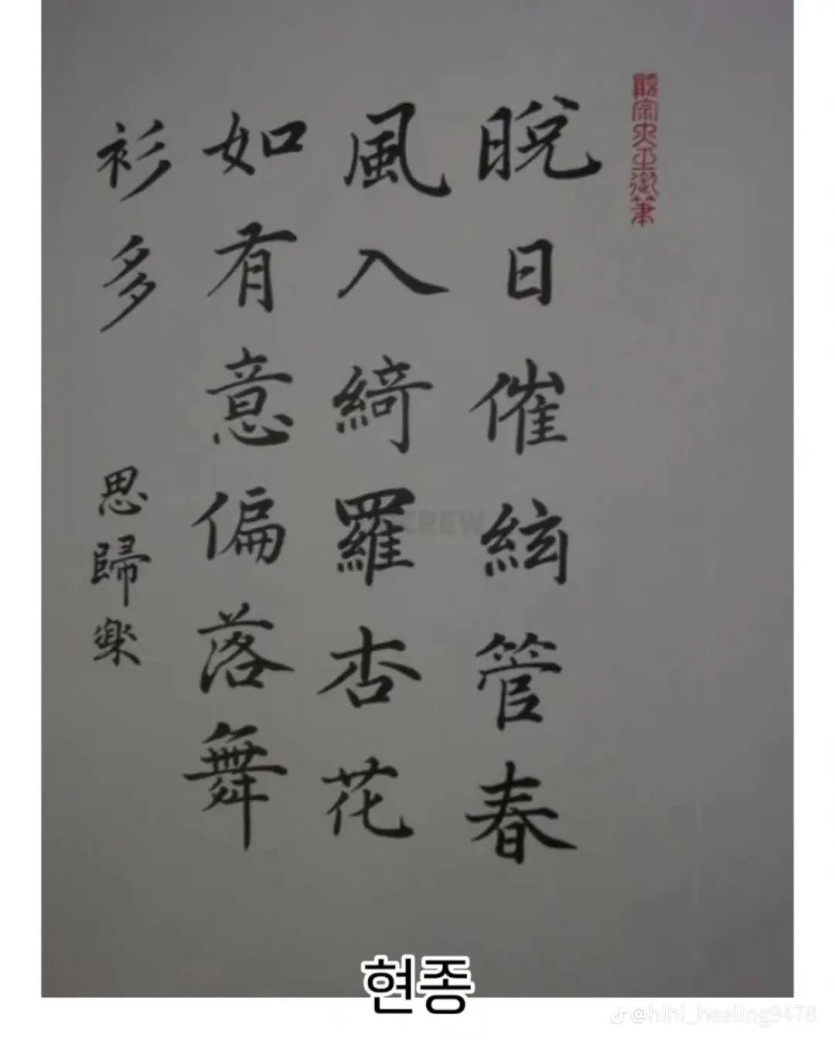 顯宗大王御筆
晚日催絃管春
風入綺羅杏花
如有意偏落舞
衫多
思歸楽
현종
@hihi_healing9478